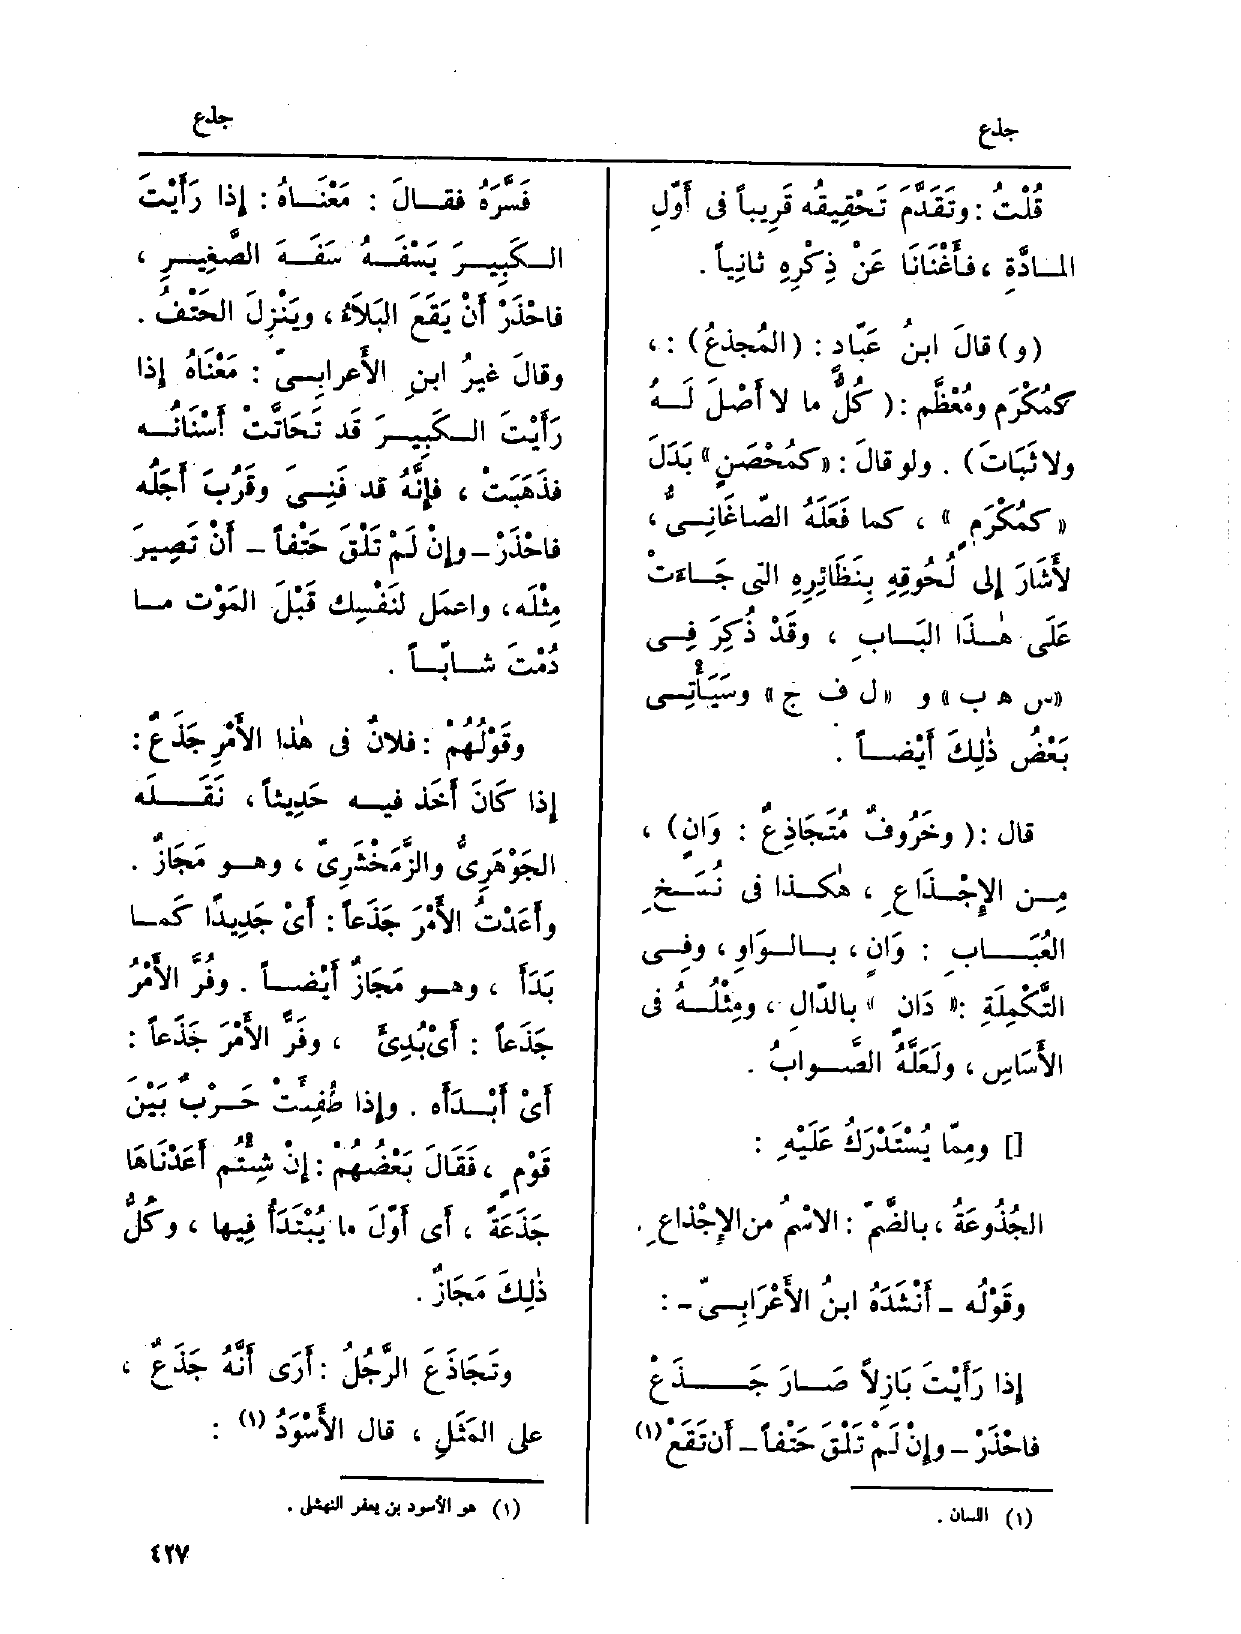 جذع
جذع
قُلْتُ : وتَقَدَّمَ تَحْقِيقُه قَرِيباً فى أَوّلِ
المــادَّةِ ، فأَغْنَانَا عَنْ ذِكْرِهِ ثانِياً .
(و) قالَ ابنُ عَبّادٍ : (المُجذعُ) : ،
كمُكْرَمٍ ومُعَظَّمٍ : ( كُلُّ ما لا أَصْلَ لَــهُ
ولا ثَبَاتَ) . ولو قالَ : «كمُحْصَنٍ» بَدَلَ
«كمُكْرَمٍ » ، كما فَعَلَهُ الصّاغَانِــىُّ ،
لأَشَارَ إلى لُحُوقِهِ بِنَظَائِرِهِ التى جَــاءَتْ
عَلَى هٰــذَا البَــابِ ، وقَدْ ذُكِرَ فِــى
«س ه ب» و «ل ف ج» وسَيَأْتِــى
بَعْضُ ذٰلِكَ أَيْضــاً .
قال : ( وخَرُوفٌ مُتَجَاذِعٌ : وَانٍ) ،
مِــن الإِجْــذَاعِ ، هٰكــذا فى نُسَــخِ
العُبَــــابِ : وَانٍ ، بــالــوَاوِ ، وفِــى
التَّكْمِلَةِ : « دَان » بالدّال ، ومِثْلُــهُ فى
الأَسَاسِ ، ولَعَلَّهُ الصَّــوابُ .
[] ومِمّا يُسْتَدْرَكُ عَلَيْهِ :
الجُذُوعَةُ ، بالضَّمّ : الاسْمُ من الإِجْذاعِ .
وقَوْلُه - أَنْشَدَهُ ابنُ الأَعْرَابِــىّ - :
إذا رَأَيْتَ بَازِلاً صَــارَ جَــــذَعْ
فاحْذَرْ - وإنْ لَمْ تَلْقَ حَتْفاً - أَن تَقَعْ (١)
(١) اللسان .
فَسَّرَهُ فقــالَ : مَعْنَــاهُ : إذا رَأَيْتَ
الــكَبِيــرَ يَسْفَــهُ سَفَــهَ الصَّغِيــرِ ،
فاحْذَرْ أَنْ يَقَعَ البَلاَءُ ، ويَنْزِلَ الحَتْفُ .
وقالَ غيرُ ابنِ الأَعرابِــىّ : مَعْنَاهُ إذا
رَأَيْتَ الــكَبِيــرَ قد تَحَاتَّتْ أَسْنَانُــه
فذَهَبَتْ ، فإِنَّهُ قد فَنِــىَ وقَرُبَ أَجَلُه
فاحْذَرْ - وإنْ لَمْ تَلْقَ حَتْفاً - أَنْ تَصِيــرَ
مِثْلَه ، واعمَل لنَفْسِك قَبْلَ المَوْت مــا
دُمْتَ شــابّــاً .
وقَوْلُهُمْ : فلانٌ فى هٰذا الأَمْرِ جَذَعٌ :
إذا كَانَ أَخَذ فيــه حَدِيثاً ، نَقَــــلَه
الجَوْهَرِىُّ والزَّمَخْشَرِىّ ، وهــو مَجَازٌ .
وأَعَدْتُ الأَمْرَ جَذَعاً : أَىْ جَدِيدًا كَمــا
بَدَأَ ، وهــو مَجَازٌ أَيْضــاً . وفُرَّ الأَمْرُ
جَذَعاً : أَىْ بُدِئَ ، وفَرَّ الأَمْرَ جَذَعاً :
أَىْ أَبْــدَأَه . وإذا طُفِئَتْ حَــرْبٌ بَيْنَ
قَوْمٍ ، فَقَالَ بَعْضُهُمْ : إنْ شِئْتُم أَعَدْنَاهَا
جَذَعَةً ، أَى أَوّلَ ما يُبْتَدَأُ فِيها ، وكُلُّ
ذٰلِكَ مَجَازٌ .
وتَجَاذَعَ الرَّجُلُ : أَرَى أَنَّهُ جَذَعٌ ،
على المَثَلِ ، قال الأَسْوَدُ (١) :
(١) هو الأسود بن يعفر النهشلى .
٤٢٧